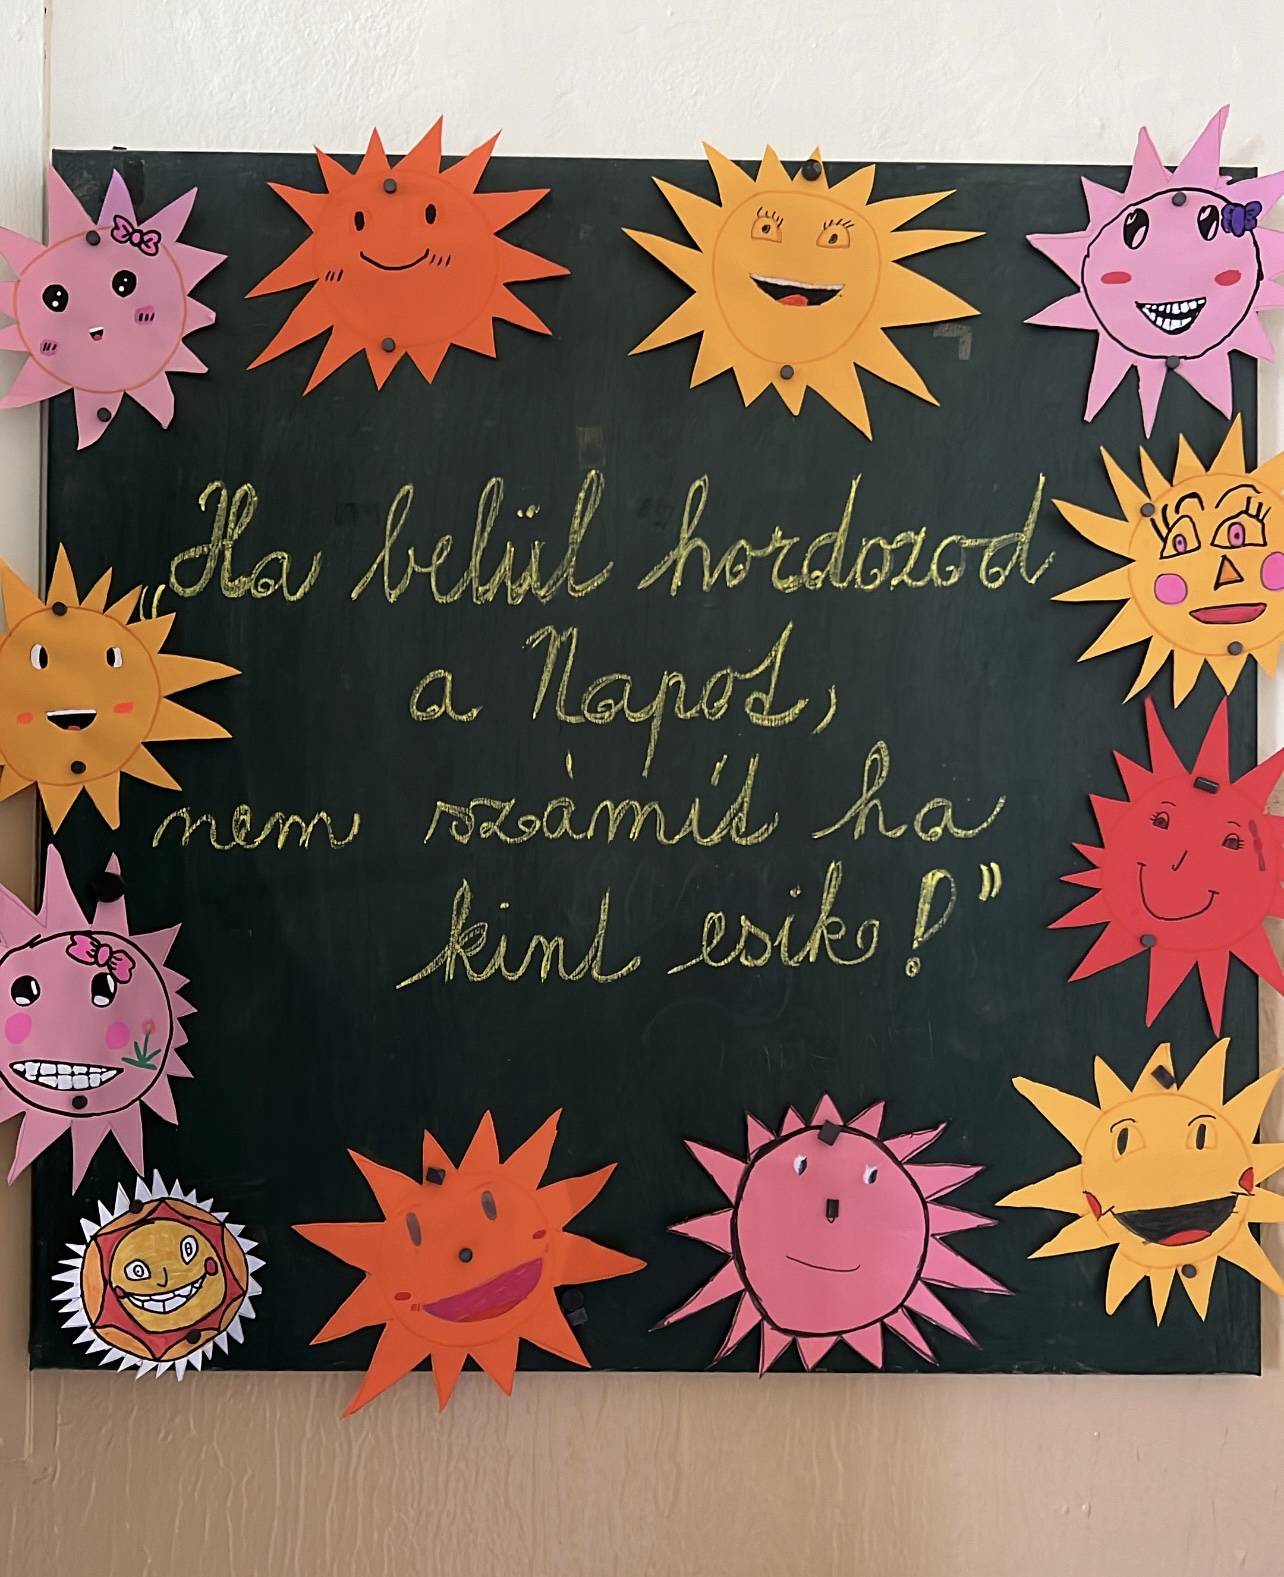 „Ha belül hordozod
a Napot,
nem számít ha
kint esik!”